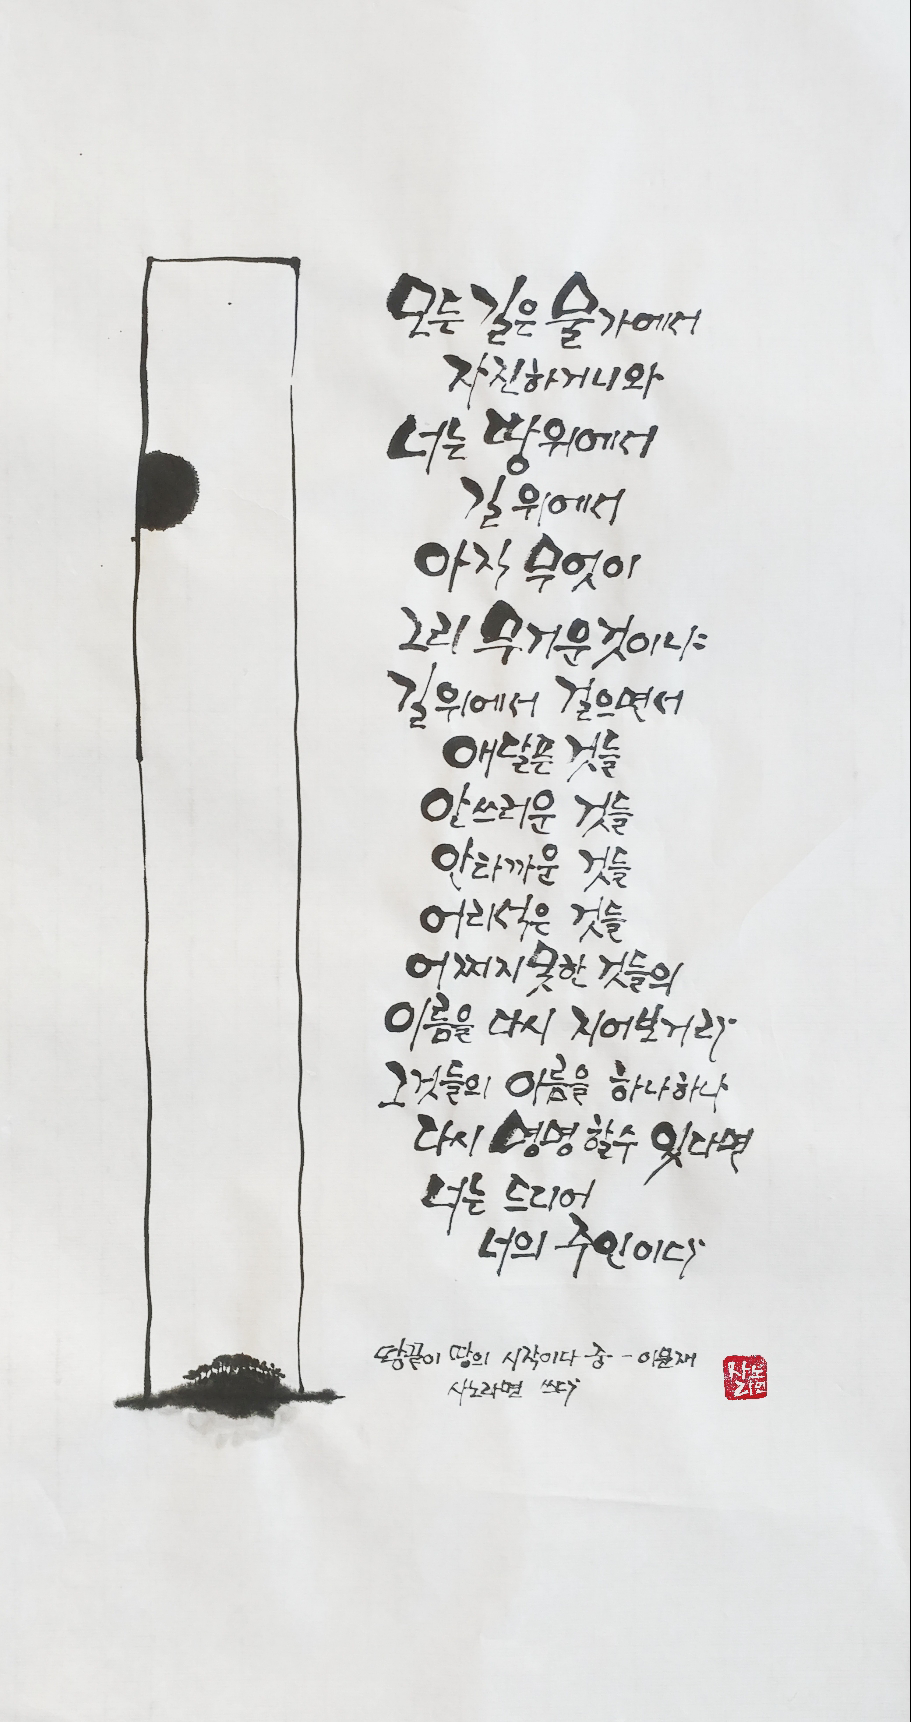 모든 길은 물가에서
자진하거니와
너는 땅위에서
길 위에서
아직 무엇이
그리 무거운것이냐
길위에서 걸으면서
애달픈 것들
안쓰러운 것들
안타까운 것들
어리석은 것들
어쩌지못한 것들의
이름을 다시 지어보거라
그것들의 이름을 하나하나
다시 명명할수 있다면
너는 드디어
너의 주인이다
땅끝이 땅의 시작이다 중 - 이문재
사노라면 쓰다
사노라면